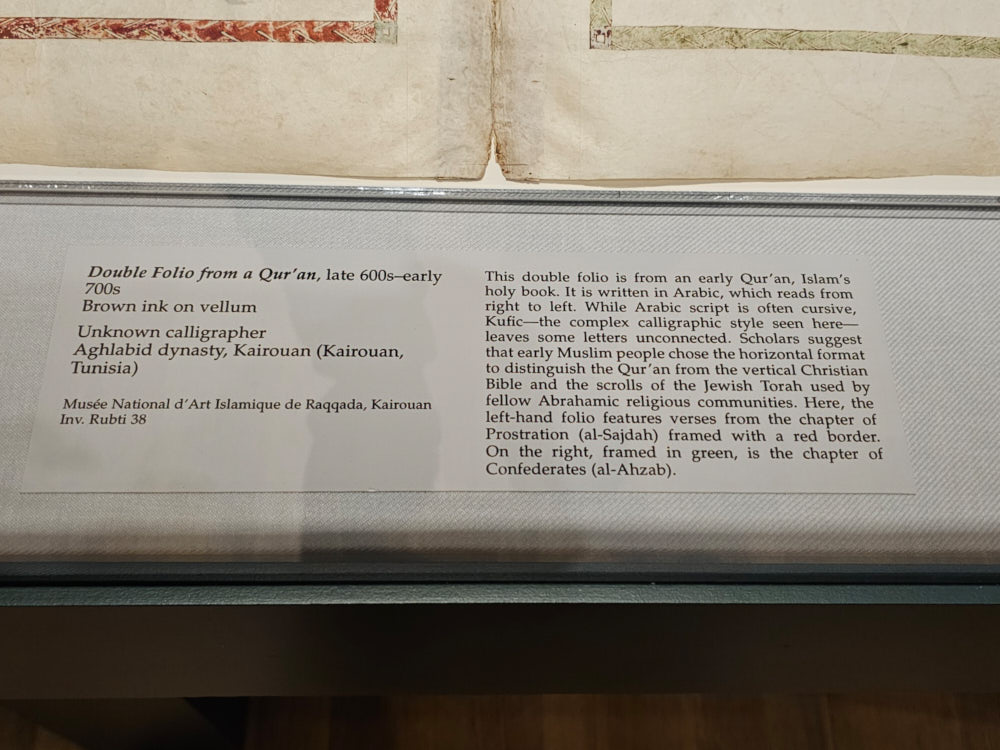 Double Folio from a Qur'an, late 600s–early
700s
Brown ink on vellum
Unknown calligrapher
Aghlabid dynasty, Kairouan (Kairouan,
Tunisia)
Musée National d'Art Islamique de Raqqada, Kairouan
Inv. Rubti 38
This double folio is from an early Qur'an, Islam's
holy book. It is written in Arabic, which reads from
right to left. While Arabic script is often cursive,
Kufic—the complex calligraphic style seen here—
leaves some letters unconnected. Scholars suggest
that early Muslim people chose the horizontal format
to distinguish the Qur'an from the vertical Christian
Bible and the scrolls of the Jewish Torah used by
fellow Abrahamic religious communities. Here, the
left-hand folio features verses from the chapter of
Prostration (al-Sajdah) framed with a red border.
On the right, framed in green, is the chapter of
Confederates (al-Ahzab).